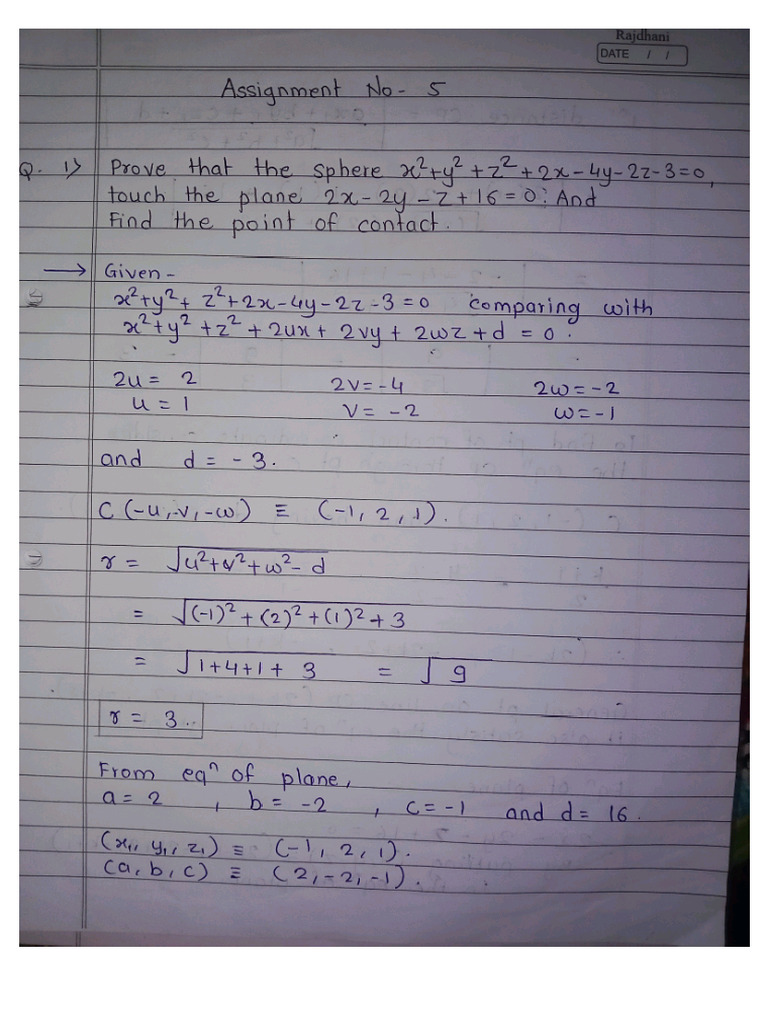 Rajdhani
DATE / /
Assignment No - 5
Q. 1) Prove that the sphere x²+y²+z²+2x-4y-2z-3=0,
touch the plane 2x-2y-z+16=0. And
Find the point of contact.
→ Given -
x²+y²+z²+2x-4y-2z-3=0 comparing with
x²+y²+z²+2ux+2vy+2wz+d=0.
2u = 2 2v=-4 2w=-2
u = 1 v= -2 w=-1
and d = -3.
C(-u,-v,-w) ≡ (-1, 2, 1).
r = √u²+v²+w²-d
= √(-1)²+(2)²+(1)²+3
= √1+4+1+ 3 = √9
r = 3..
From eqⁿ of plane,
a=2 , b= -2 , c=-1 and d= 16.
(x₁, y₁, z₁) ≡ (-1, 2, 1).
(a, b, c) ≡ (2,-2,-1).